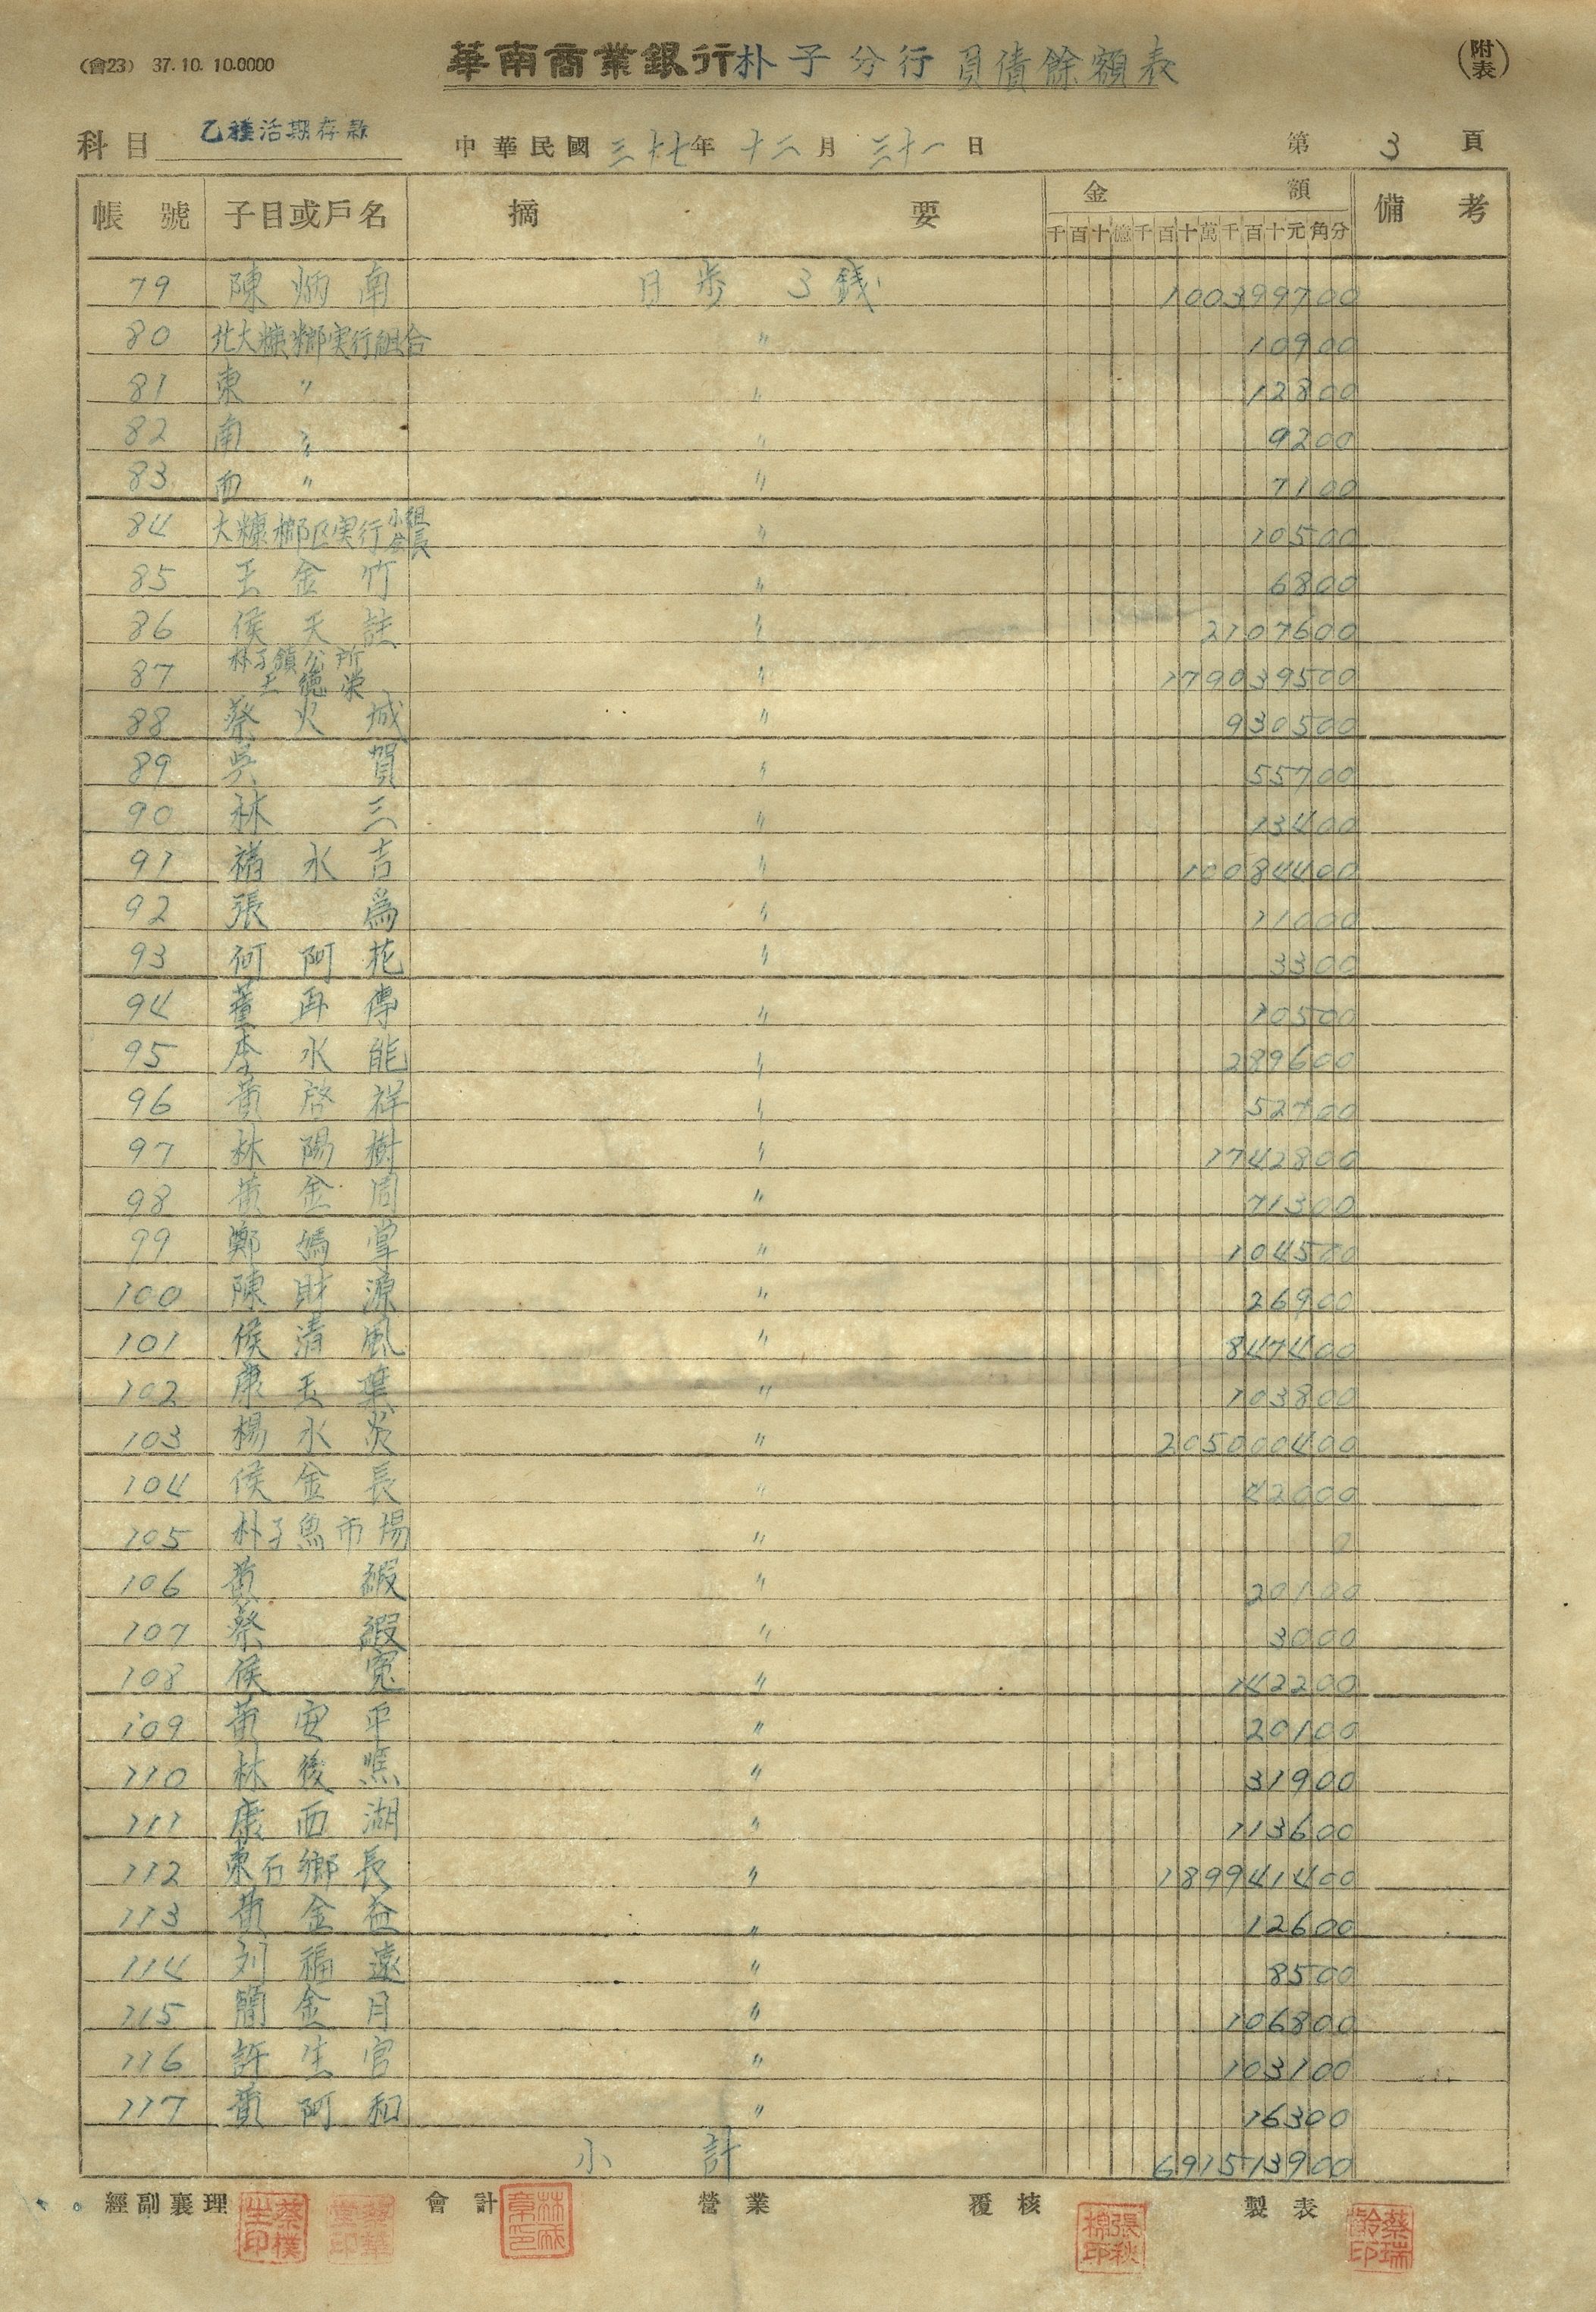 (會23) 37.10.10.0000
華南商業銀行朴子分行 負債餘額表
(附表)
科目 乙種活期存款 中華民國三十七年十二月三十一日 第3頁
帳號 子目或戶名 摘要 金額 備考
千百十億千百十萬千百十元角分
79 陳炳南 日步 3錢 100399700
80 北大糠榔実行組合 〃 10900
81 東 〃 〃 12800
82 南 〃 〃 9200
83 西 〃 〃 7100
84 大糠榔区実行小組合長 〃 10500
85 王金竹 〃 6800
86 侯天註 〃 2107600
87 朴子鎮公所 王德栄 〃 179039500
88 蔡火城 〃 930500
89 吳賀 〃 55700
90 林三 〃 13400
91 禇水吉 〃 10084400
92 張為 〃 11000
93 何阿花 〃 3300
94 董再傳 〃 10500
95 李水能 〃 289600
96 黃啓祥 〃 52700
97 林陽樹 〃 1742800
98 黃金周 〃 71300
99 鄭媽掌 〃 104500
100 陳財源 〃 26900
101 侯清風 〃 847400
102 康玉葉 〃 103800
103 楊水炎 〃 205000400
104 侯金長 〃 42000
105 朴子魚市場 〃 0
106 黃緞 〃 20100
107 蔡緞 〃 3000
108 侯寬 〃 142200
109 黃安平 〃 20100
110 林後憔 〃 31900
111 康西湖 〃 113600
112 東石鄉長 〃 189941400
113 黃金益 〃 12600
114 刘福遠 〃 8500
115 簡金月 〃 106800
116 許生官 〃 103100
117 黃阿和 〃 16300
小計 691513900
經副襄理 會計 營業 覆核 製表
蔡樸生印
張秋棉印
蔡瑞齡印